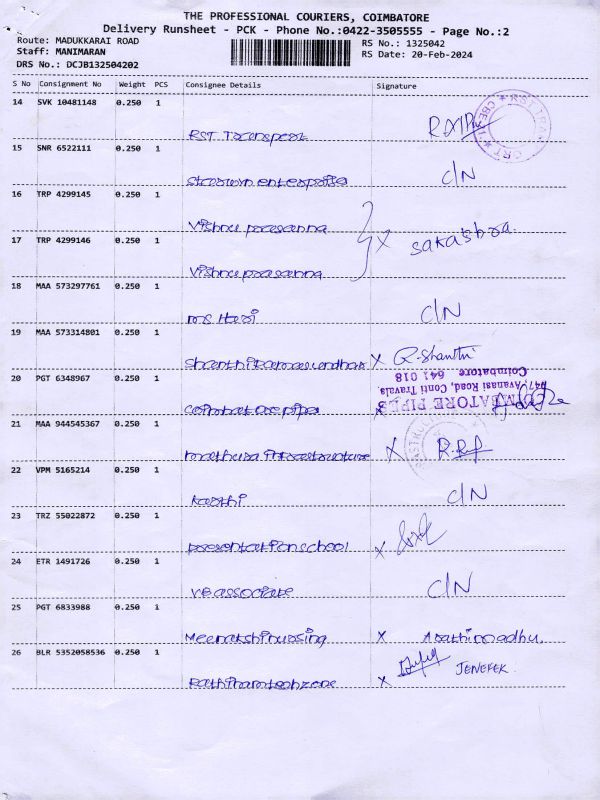 THE PROFESSIONAL COURIERS, COIMBATORE
Delivery Runsheet - PCK - Phone No.:0422-3505555 - Page No.:2
Route: MADUKKARAI ROAD
RS No.: 1325042
Staff: MANIMARAN
RS Date: 20-Feb-2024
DRS No.: DCJB132504202
S No Consignment No Weight PCS Consignee Details Signature
14 SVK 10481148 0.250 1
RST Transport
15 SNR 6522111 0.250 1
enterprise C/N
16 TRP 4299145 0.250 1
Vishnu prasanna
17 TRP 4299146 0.250 1
Vishnu prasanna X
18 MAA 573297761 0.250 1
ms. Hari C/N
19 MAA 573314801 0.250 1
Shanthi ramasundhar X R. Shanthi
20 PGT 6348967 0.250 1
Coimbatore pipe
COIMBATORE PIPES
Avanasi Road, Conti Travals
Coimbatore 641 018
21 MAA 944545367 0.250 1
mathura infrastructure X
22 VPM 5165214 0.250 1
Karthi C/N
23 TRZ 55022872 0.250 1
presentation school X
24 ETR 1491726 0.250 1
VB associate C/N
25 PGT 6833988 0.250 1
Meenakshi nursing X
26 BLR 5352058536 0.250 1
Rathinam techzone X JENEFEK